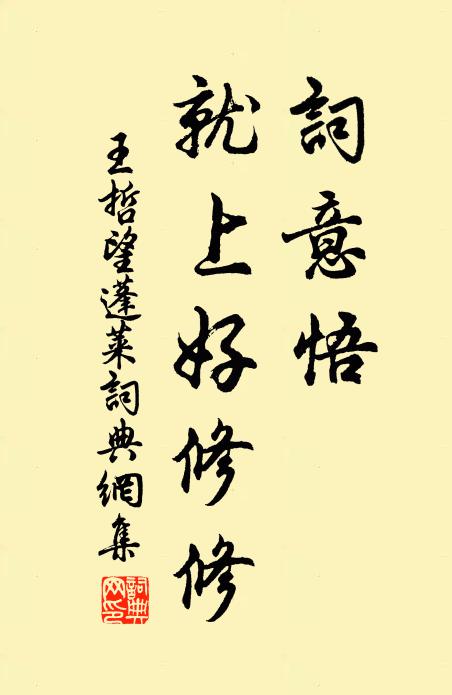 詞意悟
就上好修修
王哲望蓬萊詞典網集
詞典網印